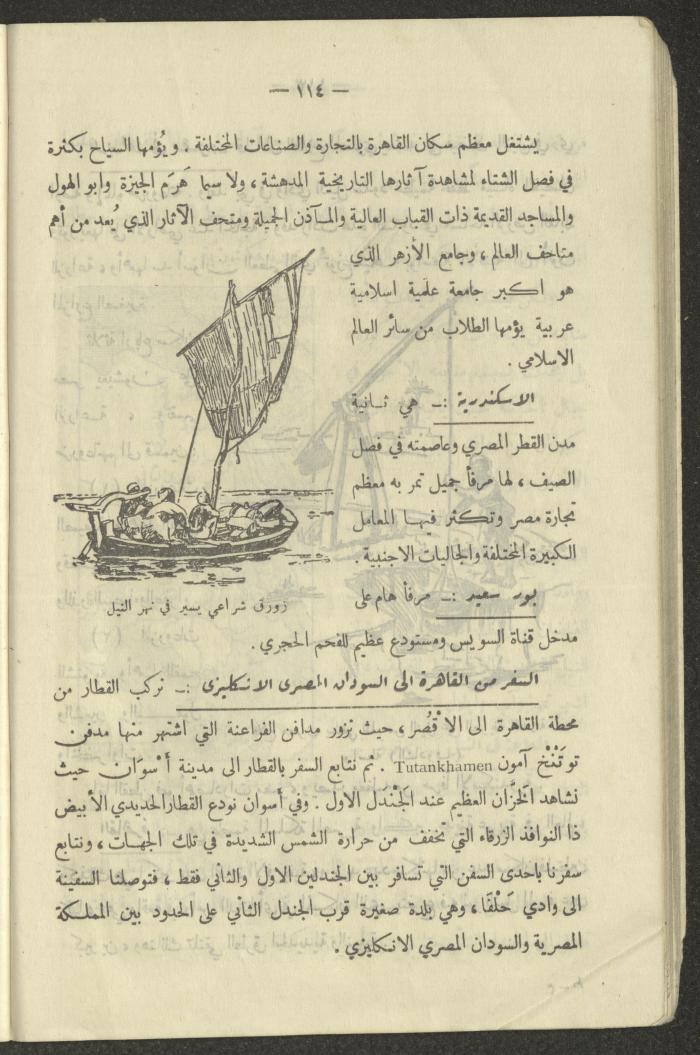 — ١١٤ —
يشتغل معظم سكان القاهرة بالتجارة والصناعات المختلفة . ويُؤمها السياح بكثرة
في فصل الشتاء لمشاهدة آثارها التاريخية المدهشة ، ولا سيما هَرَم الجيزة وابو الهول
والمساجد القديمة ذات القباب العالية والمآذن الجميلة ومتحف الآثار الذي يُعد من أهم
متاحف العالم ، وجامع الأزهر الذي
هو اكبر جامعة علمية اسلامية
عربية يؤمها الطلاب من سائر العالم
الاسلامي .
الاسكندرية :ـ هي ثانية
مدن القطر المصري وعاصمته في فصل
الصيف ، لها مرفأ جميل تمر به معظم
تجارة مصر وتكثر فيها المعامل
الكبيرة المختلفة والجاليات الاجنبية .
بور سعيد :ـ مرفأ هام على
زورق شراعي يسير في نهر النيل
مدخل قناة السويس ومستودع عظيم للفحم الحجري .
السفر من القاهرة الى السودان المصري الانكليزي :ـ نركب القطار من
محطة القاهرة الى الاقْصُر ، حيث نزور مدافن الفراعنة التي اشتهر منها مدفن
توتَنْخ آمون Tutankhamen . ثم نتابع السفر بالقطار الى مدينة أَسْوَان حيث
نشاهد الخَزَّان العظيم عند الجَنْدَل الاول . وفي أسوان نودع القطار الحديدي الأبيض
ذا النوافذ الزرقاء التي تخفف من حرارة الشمس الشديدة في تلك الجهات ، ونتابع
سفرنا باحدى السفن التي تسافر بين الجندلين الاول والثاني فقط ، فتوصلنا السفينة
الى وادي حَلْفَا ، وهي بلدة صغيرة قرب الجندل الثاني على الحدود بين المملكة
المصرية والسودان المصري الانكليزي .